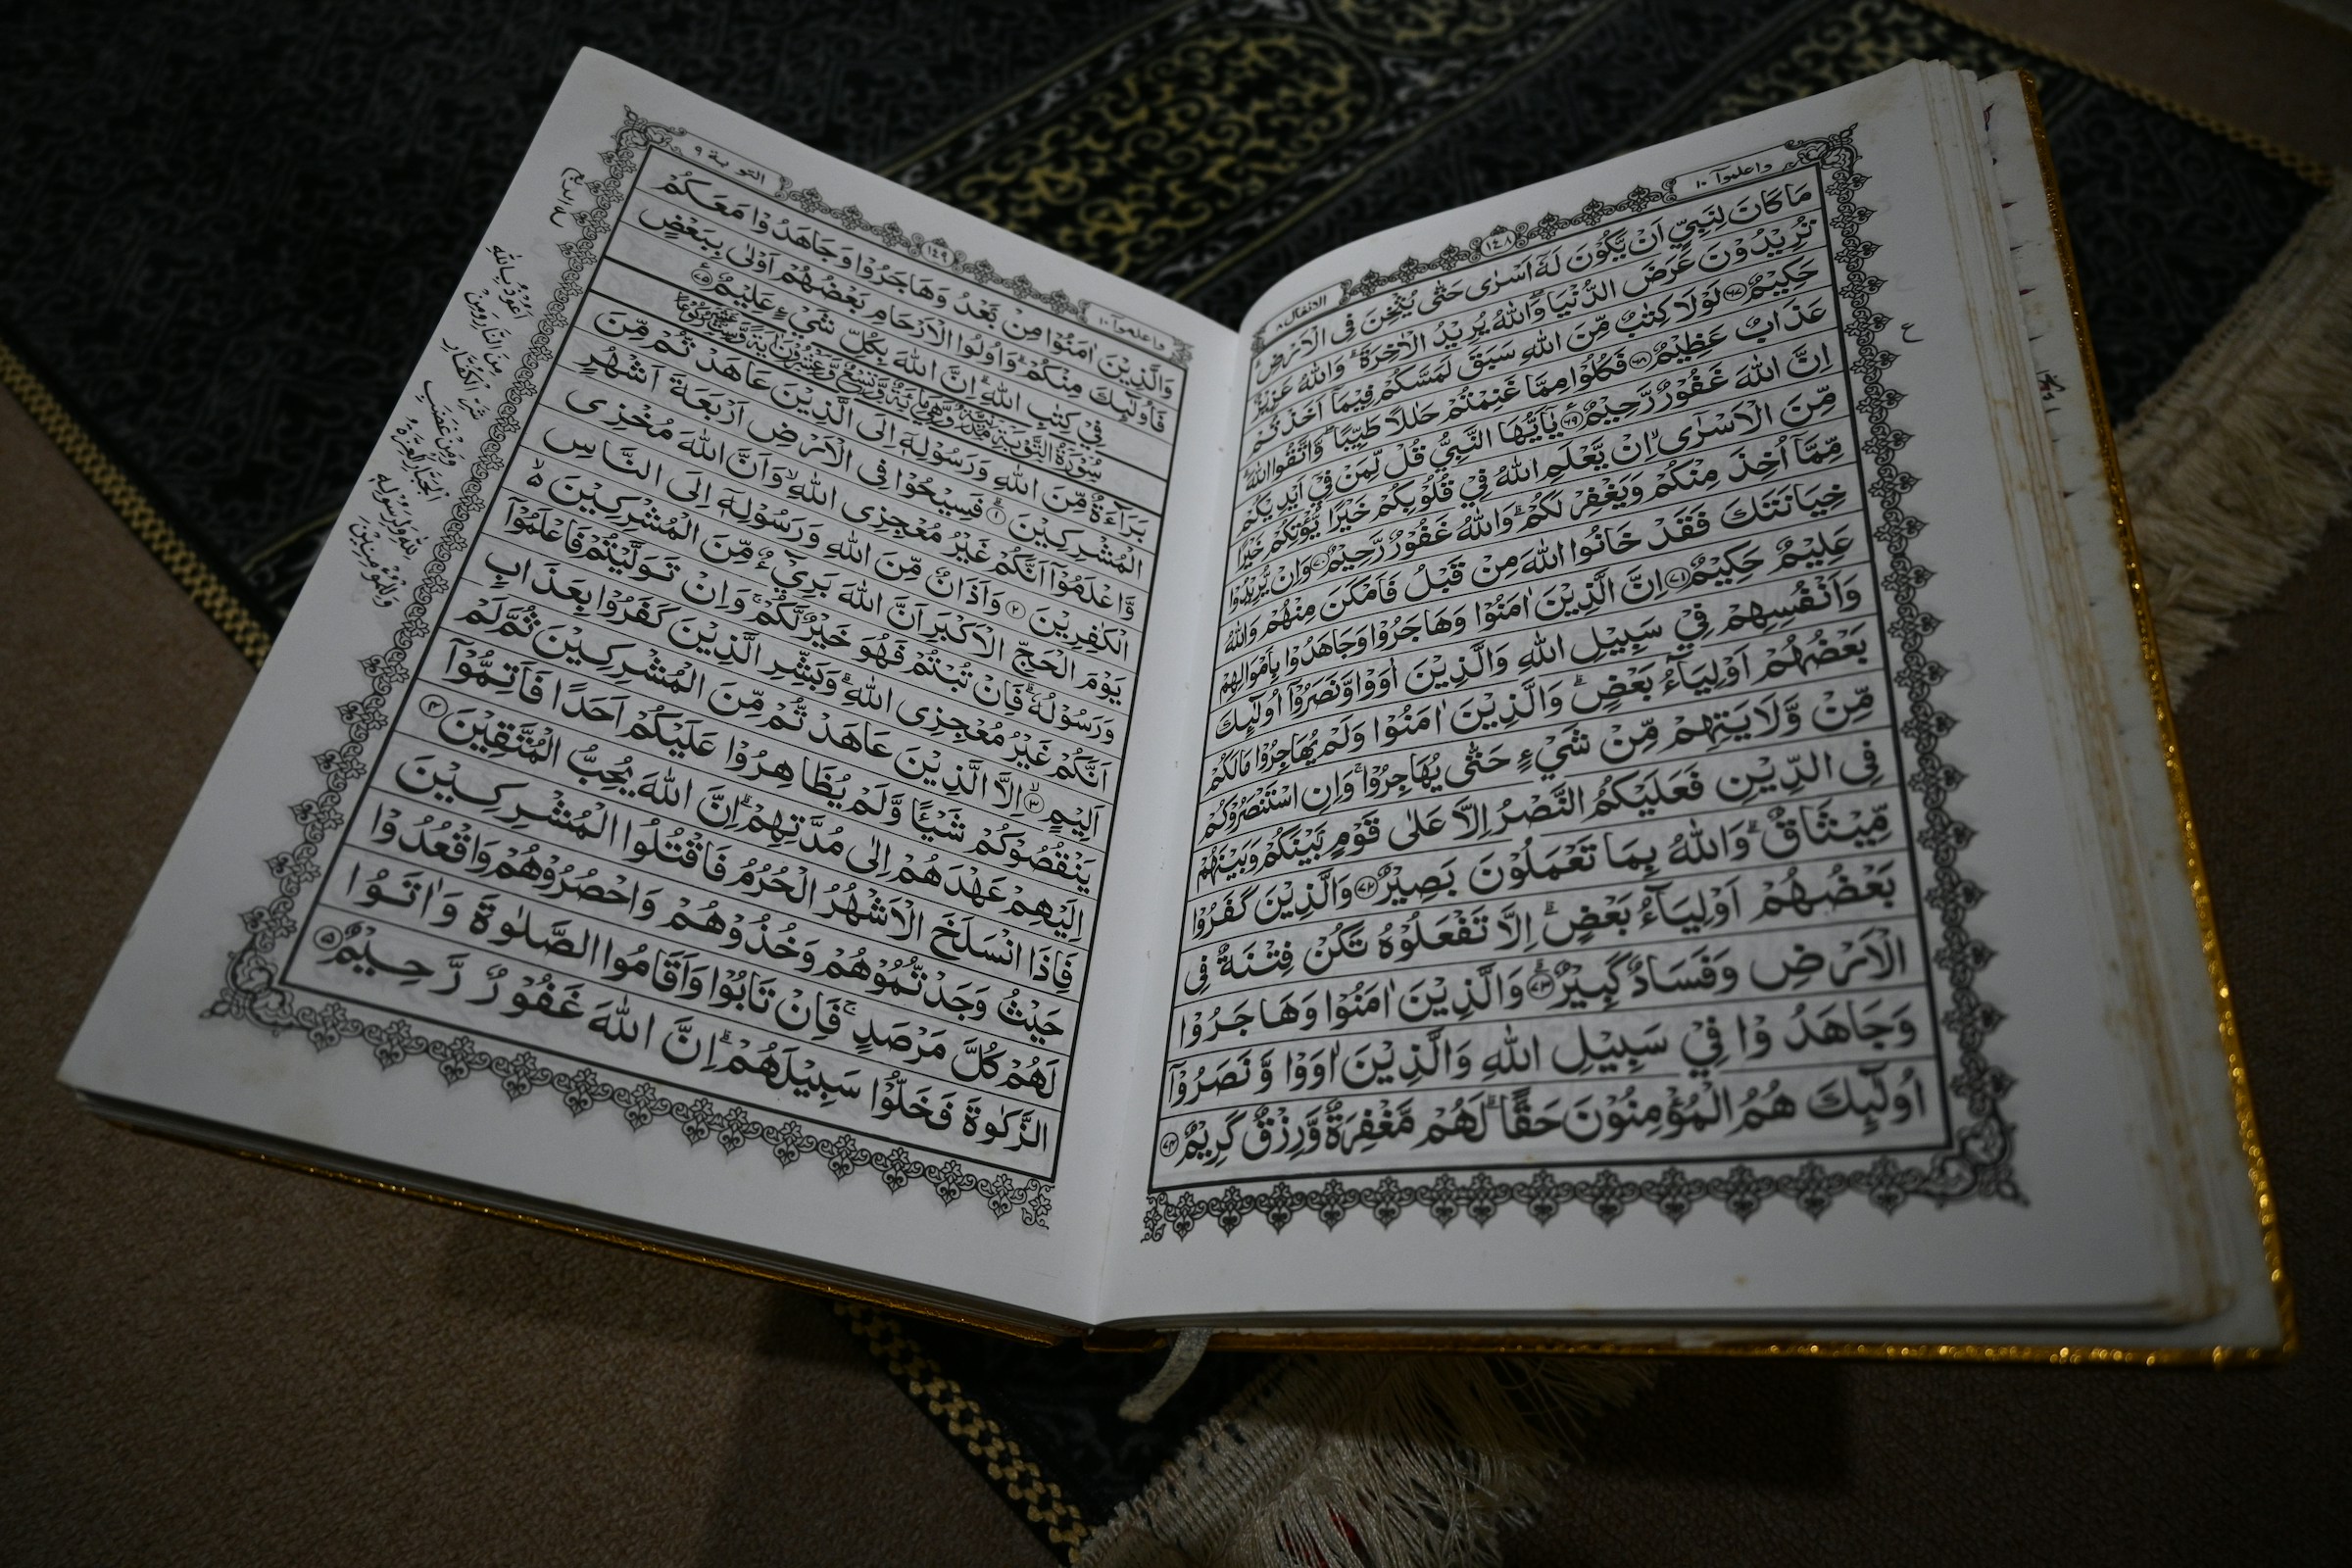 واعلموٓا ١٠
١٤٨
الانفال ٨
مَا كَانَ لِنَبِيٍّ اَنْ يَّكُوْنَ لَهٗٓ اَسْرٰى حَتّٰى يُثْخِنَ فِى الْاَرْضِ ؕ
تُرِيْدُوْنَ عَرَضَ الدُّنْيَا ۖ وَاللّٰهُ يُرِيْدُ الْاٰخِرَةَ ؕ وَاللّٰهُ عَزِيْزٌ
حَكِيْمٌ ﴿۶۷﴾ لَوْلَا كِتٰبٌ مِّنَ اللّٰهِ سَبَقَ لَمَسَّكُمْ فِيْمَآ اَخَذْتُمْ
عَذَابٌ عَظِيْمٌ ﴿۶۸﴾ فَكُلُوْا مِمَّا غَنِمْتُمْ حَلٰلًا طَيِّبًا ۖ وَّاتَّقُوا اللّٰهَ ؕ
اِنَّ اللّٰهَ غَفُوْرٌ رَّحِيْمٌ ﴿۶۹﴾ يٰٓاَيُّهَا النَّبِيُّ قُلْ لِّمَنْ فِيْٓ اَيْدِيْكُمْ
مِّنَ الْاَسْرٰٓى ۙ اِنْ يَّعْلَمِ اللّٰهُ فِيْ قُلُوْبِكُمْ خَيْرًا يُّؤْتِكُمْ خَيْرًا
مِّمَّآ اُخِذَ مِنْكُمْ وَيَغْفِرْ لَكُمْ ؕ وَاللّٰهُ غَفُوْرٌ رَّحِيْمٌ ﴿۷۰﴾ وَاِنْ يُّرِيْدُوْا
خِيَانَتَكَ فَقَدْ خَانُوا اللّٰهَ مِنْ قَبْلُ فَاَمْكَنَ مِنْهُمْ ؕ وَاللّٰهُ
عَلِيْمٌ حَكِيْمٌ ﴿۷۱﴾ اِنَّ الَّذِيْنَ اٰمَنُوْا وَهَاجَرُوْا وَجَاهَدُوْا بِاَمْوَالِهِمْ
وَاَنْفُسِهِمْ فِيْ سَبِيْلِ اللّٰهِ وَالَّذِيْنَ اٰوَوْا وَّنَصَرُوْٓا اُولٰٓئِكَ
بَعْضُهُمْ اَوْلِيَآءُ بَعْضٍ ؕ وَالَّذِيْنَ اٰمَنُوْا وَلَمْ يُهَاجِرُوْا مَا لَكُمْ
مِّنْ وَّلَايَتِهِمْ مِّنْ شَيْءٍ حَتّٰى يُهَاجِرُوْا ۚ وَاِنِ اسْتَنْصَرُوْكُمْ
فِى الدِّيْنِ فَعَلَيْكُمُ النَّصْرُ اِلَّا عَلٰى قَوْمٍ بَيْنَكُمْ وَبَيْنَهُمْ
مِّيْثَاقٌ ؕ وَاللّٰهُ بِمَا تَعْمَلُوْنَ بَصِيْرٌ ﴿۷۲﴾ وَالَّذِيْنَ كَفَرُوْا
بَعْضُهُمْ اَوْلِيَآءُ بَعْضٍ ؕ اِلَّا تَفْعَلُوْهُ تَكُنْ فِتْنَةٌ فِى
الْاَرْضِ وَفَسَادٌ كَبِيْرٌ ؕ ﴿۷۳﴾ وَالَّذِيْنَ اٰمَنُوْا وَهَاجَرُوْا
وَجَاهَدُوْا فِيْ سَبِيْلِ اللّٰهِ وَالَّذِيْنَ اٰوَوْا وَّنَصَرُوْٓا
اُولٰٓئِكَ هُمُ الْمُؤْمِنُوْنَ حَقًّا ؕ لَهُمْ مَّغْفِرَةٌ وَّرِزْقٌ كَرِيْمٌ ﴿۷۴﴾
ع
واعلموٓا ١٠
١٤٩
التوبة ٩
وَالَّذِيْنَ اٰمَنُوْا مِنْ بَعْدُ وَهَاجَرُوْا وَجَاهَدُوْا مَعَكُمْ
فَاُولٰٓئِكَ مِنْكُمْ ؕ وَاُولُوا الْاَرْحَامِ بَعْضُهُمْ اَوْلٰى بِبَعْضٍ
فِيْ كِتٰبِ اللّٰهِ ؕ اِنَّ اللّٰهَ بِكُلِّ شَيْءٍ عَلِيْمٌ ﴿۷۵﴾
سُوْرَةُ التَّوْبَةِ مَدَنِيَّةٌ وَّهِيَ مِائَةٌ وَّتِسْعٌ وَّعِشْرُوْنَ اٰيَةً وَّسِتَّةَ عَشَرَ رُكُوْعًا
بَرَآءَةٌ مِّنَ اللّٰهِ وَرَسُوْلِهٖٓ اِلَى الَّذِيْنَ عَاهَدْتُّمْ مِّنَ
الْمُشْرِكِيْنَ ؕ ﴿۱﴾ فَسِيْحُوْا فِى الْاَرْضِ اَرْبَعَةَ اَشْهُرٍ
وَّاعْلَمُوْٓا اَنَّكُمْ غَيْرُ مُعْجِزِى اللّٰهِ ۙ وَاَنَّ اللّٰهَ مُخْزِى
الْكٰفِرِيْنَ ﴿۲﴾ وَاَذَانٌ مِّنَ اللّٰهِ وَرَسُوْلِهٖٓ اِلَى النَّاسِ
يَوْمَ الْحَجِّ الْاَكْبَرِ اَنَّ اللّٰهَ بَرِيْٓءٌ مِّنَ الْمُشْرِكِيْنَ ۙ۬
وَرَسُوْلُهٗ ؕ فَاِنْ تُبْتُمْ فَهُوَ خَيْرٌ لَّكُمْ ۚ وَاِنْ تَوَلَّيْتُمْ فَاعْلَمُوْٓا
اَنَّكُمْ غَيْرُ مُعْجِزِى اللّٰهِ ؕ وَبَشِّرِ الَّذِيْنَ كَفَرُوْا بِعَذَابٍ
اَلِيْمٍ ۙ ﴿۳﴾ اِلَّا الَّذِيْنَ عَاهَدْتُّمْ مِّنَ الْمُشْرِكِيْنَ ثُمَّ لَمْ
يَنْقُصُوْكُمْ شَيْـًٔا وَّلَمْ يُظَاهِرُوْا عَلَيْكُمْ اَحَدًا فَاَتِمُّوْٓا
اِلَيْهِمْ عَهْدَهُمْ اِلٰى مُدَّتِهِمْ ؕ اِنَّ اللّٰهَ يُحِبُّ الْمُتَّقِيْنَ ﴿۴﴾
فَاِذَا انْسَلَخَ الْاَشْهُرُ الْحُرُمُ فَاقْتُلُوا الْمُشْرِكِيْنَ
حَيْثُ وَجَدْتُّمُوْهُمْ وَخُذُوْهُمْ وَاحْصُرُوْهُمْ وَاقْعُدُوْا
لَهُمْ كُلَّ مَرْصَدٍ ۚ فَاِنْ تَابُوْا وَاَقَامُوا الصَّلٰوةَ وَاٰتَوُا
الزَّكٰوةَ فَخَلُّوْا سَبِيْلَهُمْ ؕ اِنَّ اللّٰهَ غَفُوْرٌ رَّحِيْمٌ ﴿۵﴾
اَعُوْذُ بِاللّٰهِ
مِنَ النَّارِ وَمِنْ
شَرِّ الْكُفَّارِ
وَمِنْ غَضَبِ
الْجَبَّارِ الْعِزَّةُ
لِلّٰهِ وَلِرَسُوْلِهٖ
وَلِلْمُؤْمِنِيْنَ